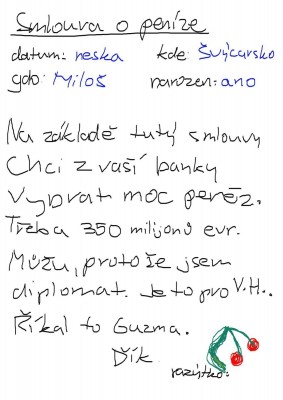 Smlouva o peníze
datum: neska kde: Švýcarsko
gdo: Miloš narozen: ano
Na základě tutý smlouvy
Chci z vaší banky
vybrat moc peněz.
Třeba 350 milijonů evr.
Můžu, protože jsem
diplomat. Je to pro V.H..
Říkal to Guzma.
Dík
razýtko: